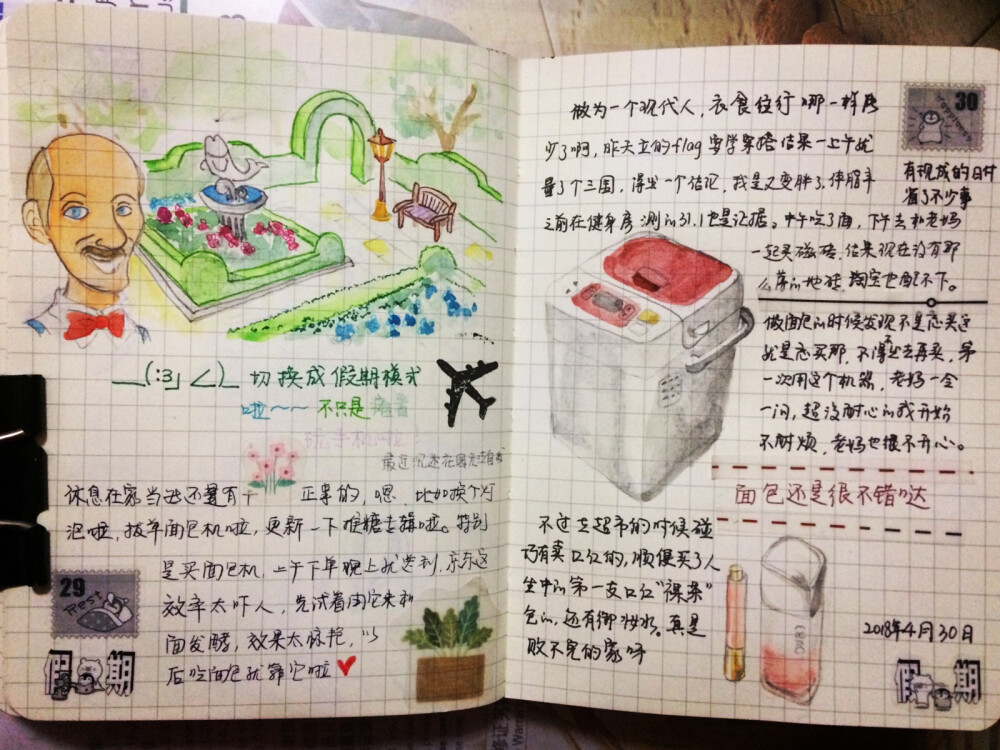 __(:3」∠)_ 切换成假期模式
啦~~ 不只是
玩手机啦
最近沉迷在
休息在家当然还是有 正事的,嗯 比如换个灯
泡啦,拔草面包机啦,更新一下 啦。特别
是买面包机,上午下单晚上就送到,京东这
效率太吓人,先试着用它来和
面发酵,效果太惊艳,以
后吃面包就靠它啦
29
Rest
假期
做为一个现代人,衣食住行哪一样能
少了啊,昨天立的flag要学穿搭结果一上午就
量了个三围,得出一个结论,我是又变胖了,体脂率
之前在健身房测的31.1也是证据。中午吃了面,下午去和老妈
一起买磁砖,结果现在没有那
么薄的地砖,淘宝也配不下。
30
happiness
有现成的日付
省了不少事
做面包的时候发现不是忘买这
就是忘买那,不得不出去再买,第
一次用这个机器,老妈一会
一问,超没耐心的我开始
不耐烦,老妈也很不开心。
面包还是很不错哒
不过去超市的时候碰
巧有卖口红的,顺便买了人
生中的第一支口红“裸茶”
色的,还有卸妆水。真是
败不完的家呀
2018年4月30日
假期